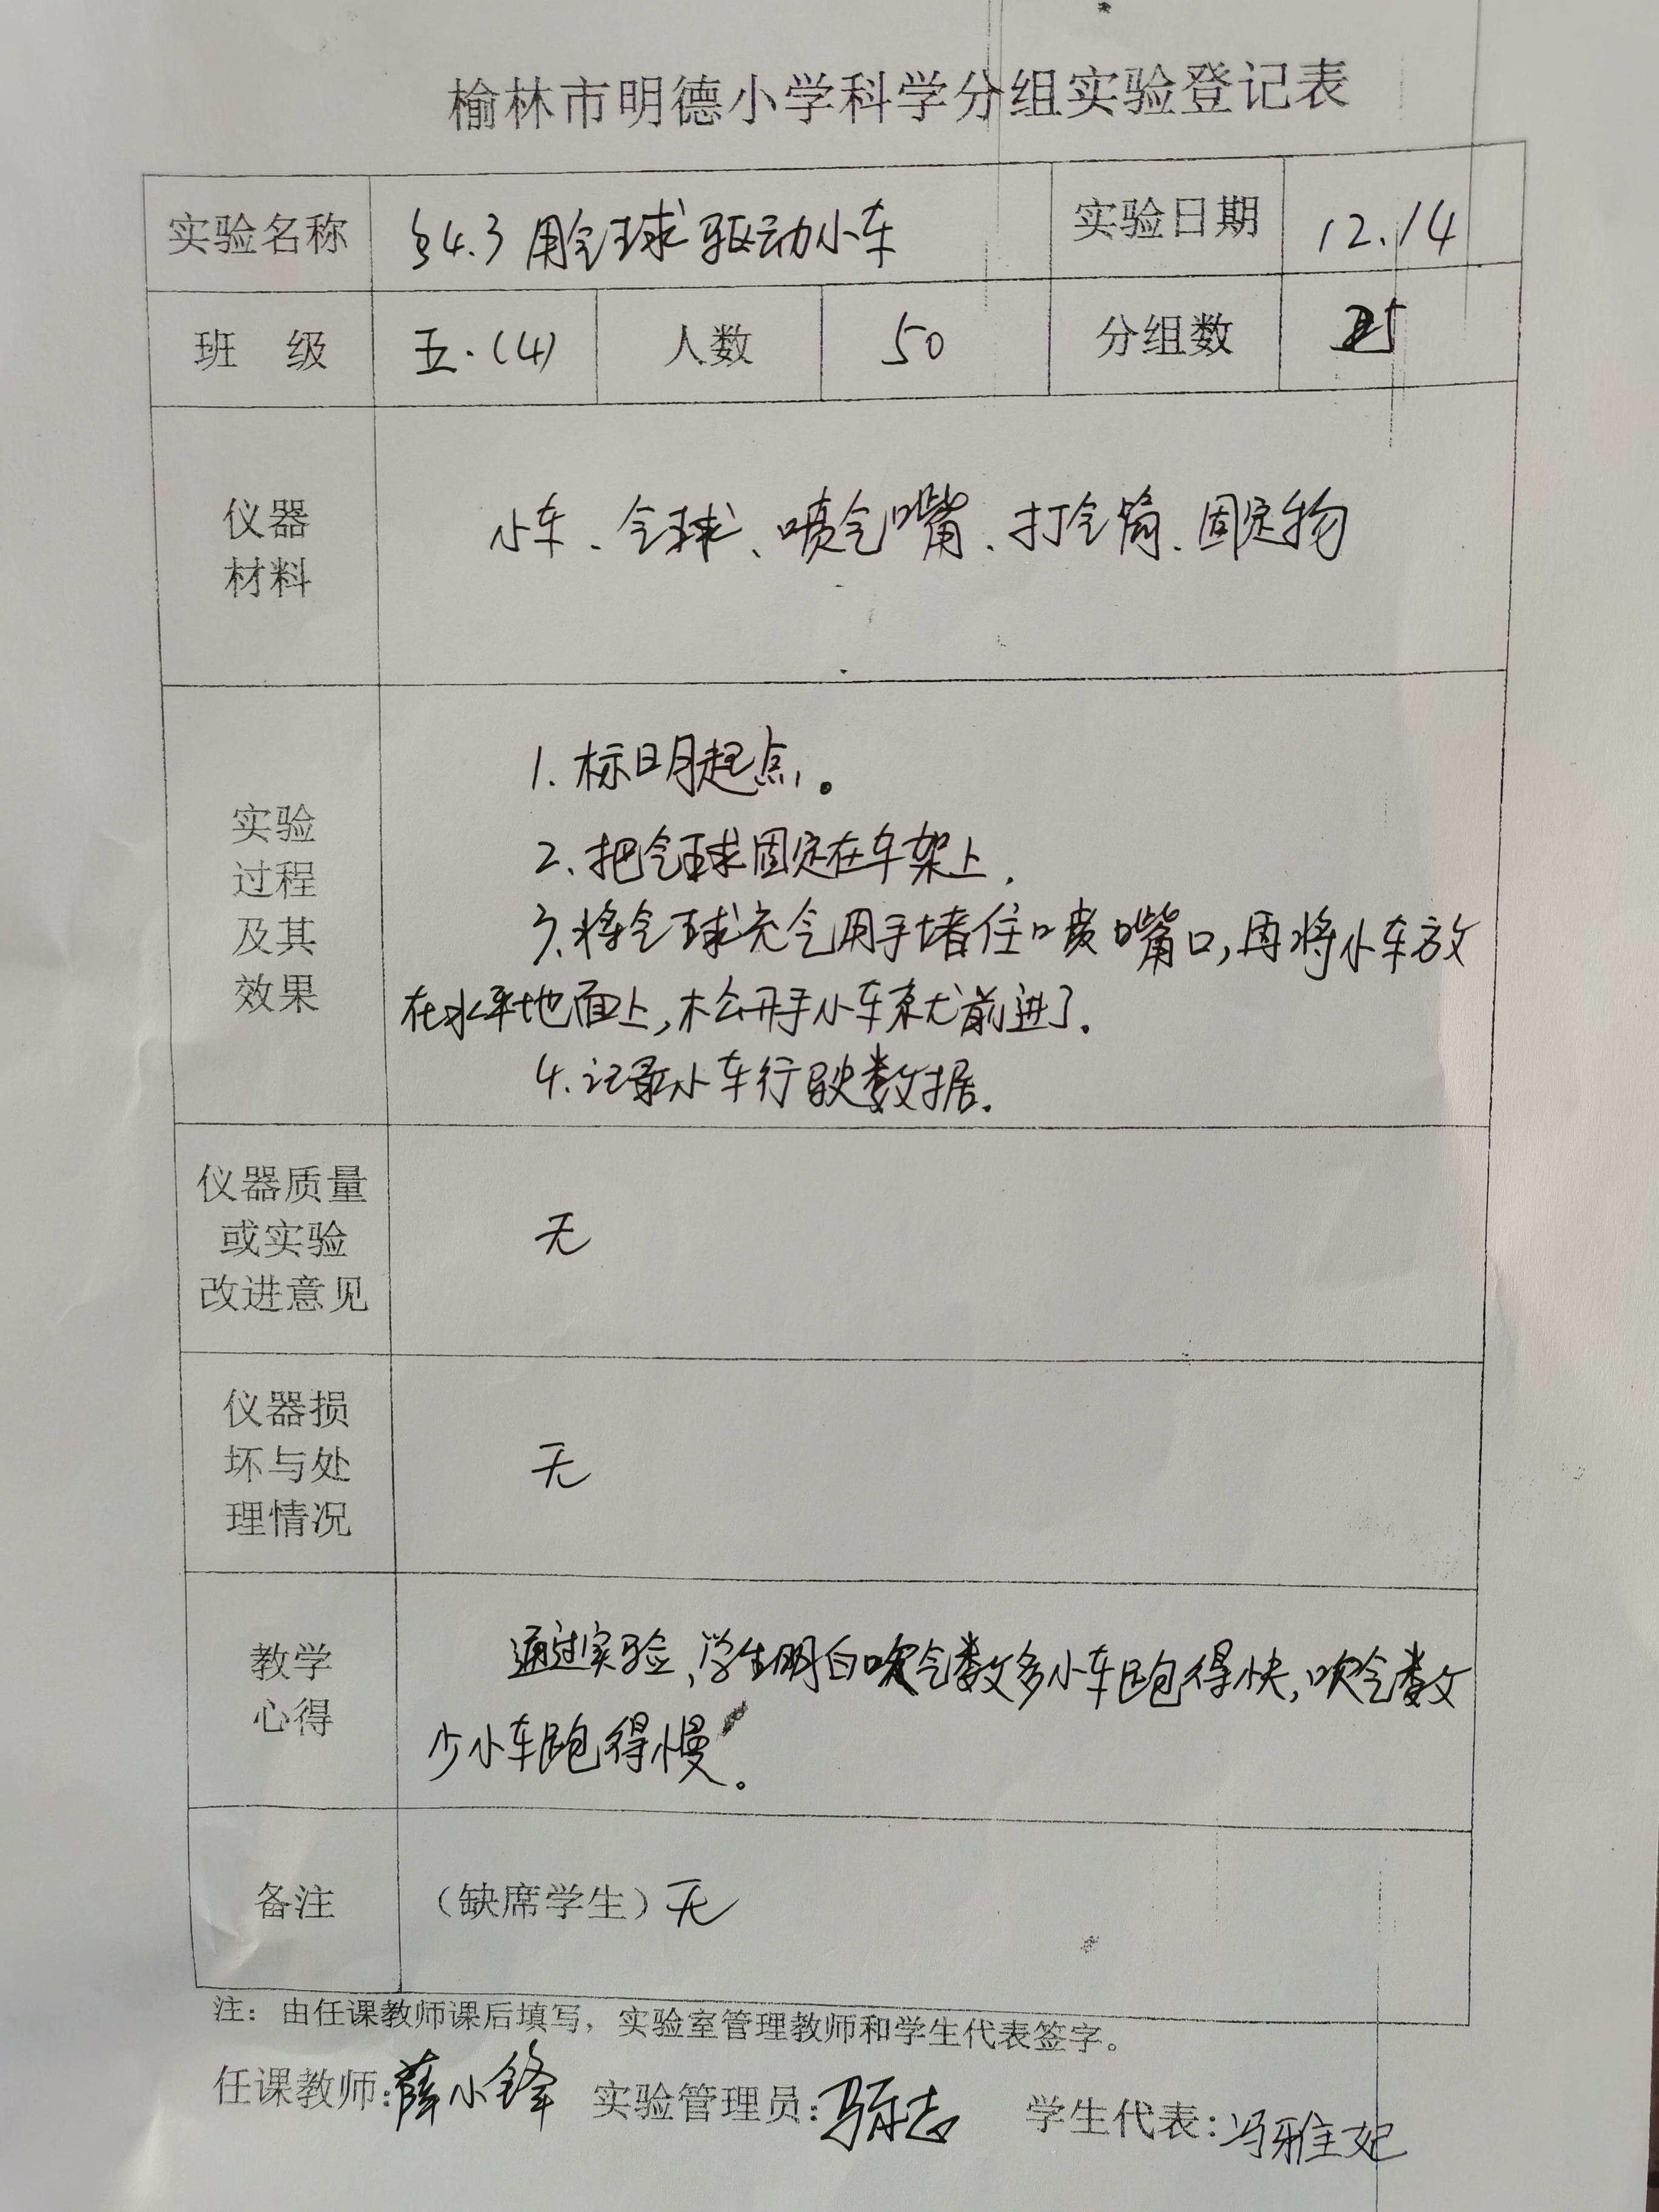 榆林市明德小学科学分组实验登记表
实验名称 §4.3 用气球驱动小车 实验日期 12.14
班 级 五.(4) 人数 50 分组数
仪器
材料
小车、气球、喷气嘴、打气筒、固定物
实验
过程
及其
效果
1. 标明起点。
2、把气球固定在车架上.
3、将气球充气用手堵住喷嘴口,再将小车放
在水平地面上,松开手小车就前进了.
4.记录小车行驶数据.
仪器质量
或实验
改进意见
无
仪器损
坏与处
理情况
无
教学
心得
通过实验、学生明白吹气数多小车跑得快,吹气数
少小车跑得慢。
备注 (缺席学生)无
注:由任课教师课后填写,实验室管理教师和学生代表签字。
任课教师:薛小锋 实验管理员: 学生代表:冯雅妃